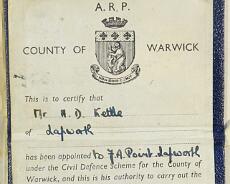 A.R.P.
COUNTY OF WARWICK
This is to certify that
Mr H.D. Kettle
of Lapworth
has been appointed to F.A. Point. Lapworth
under the Civil Defence Scheme for the County of
Warwick, and this is his authority to carry out the